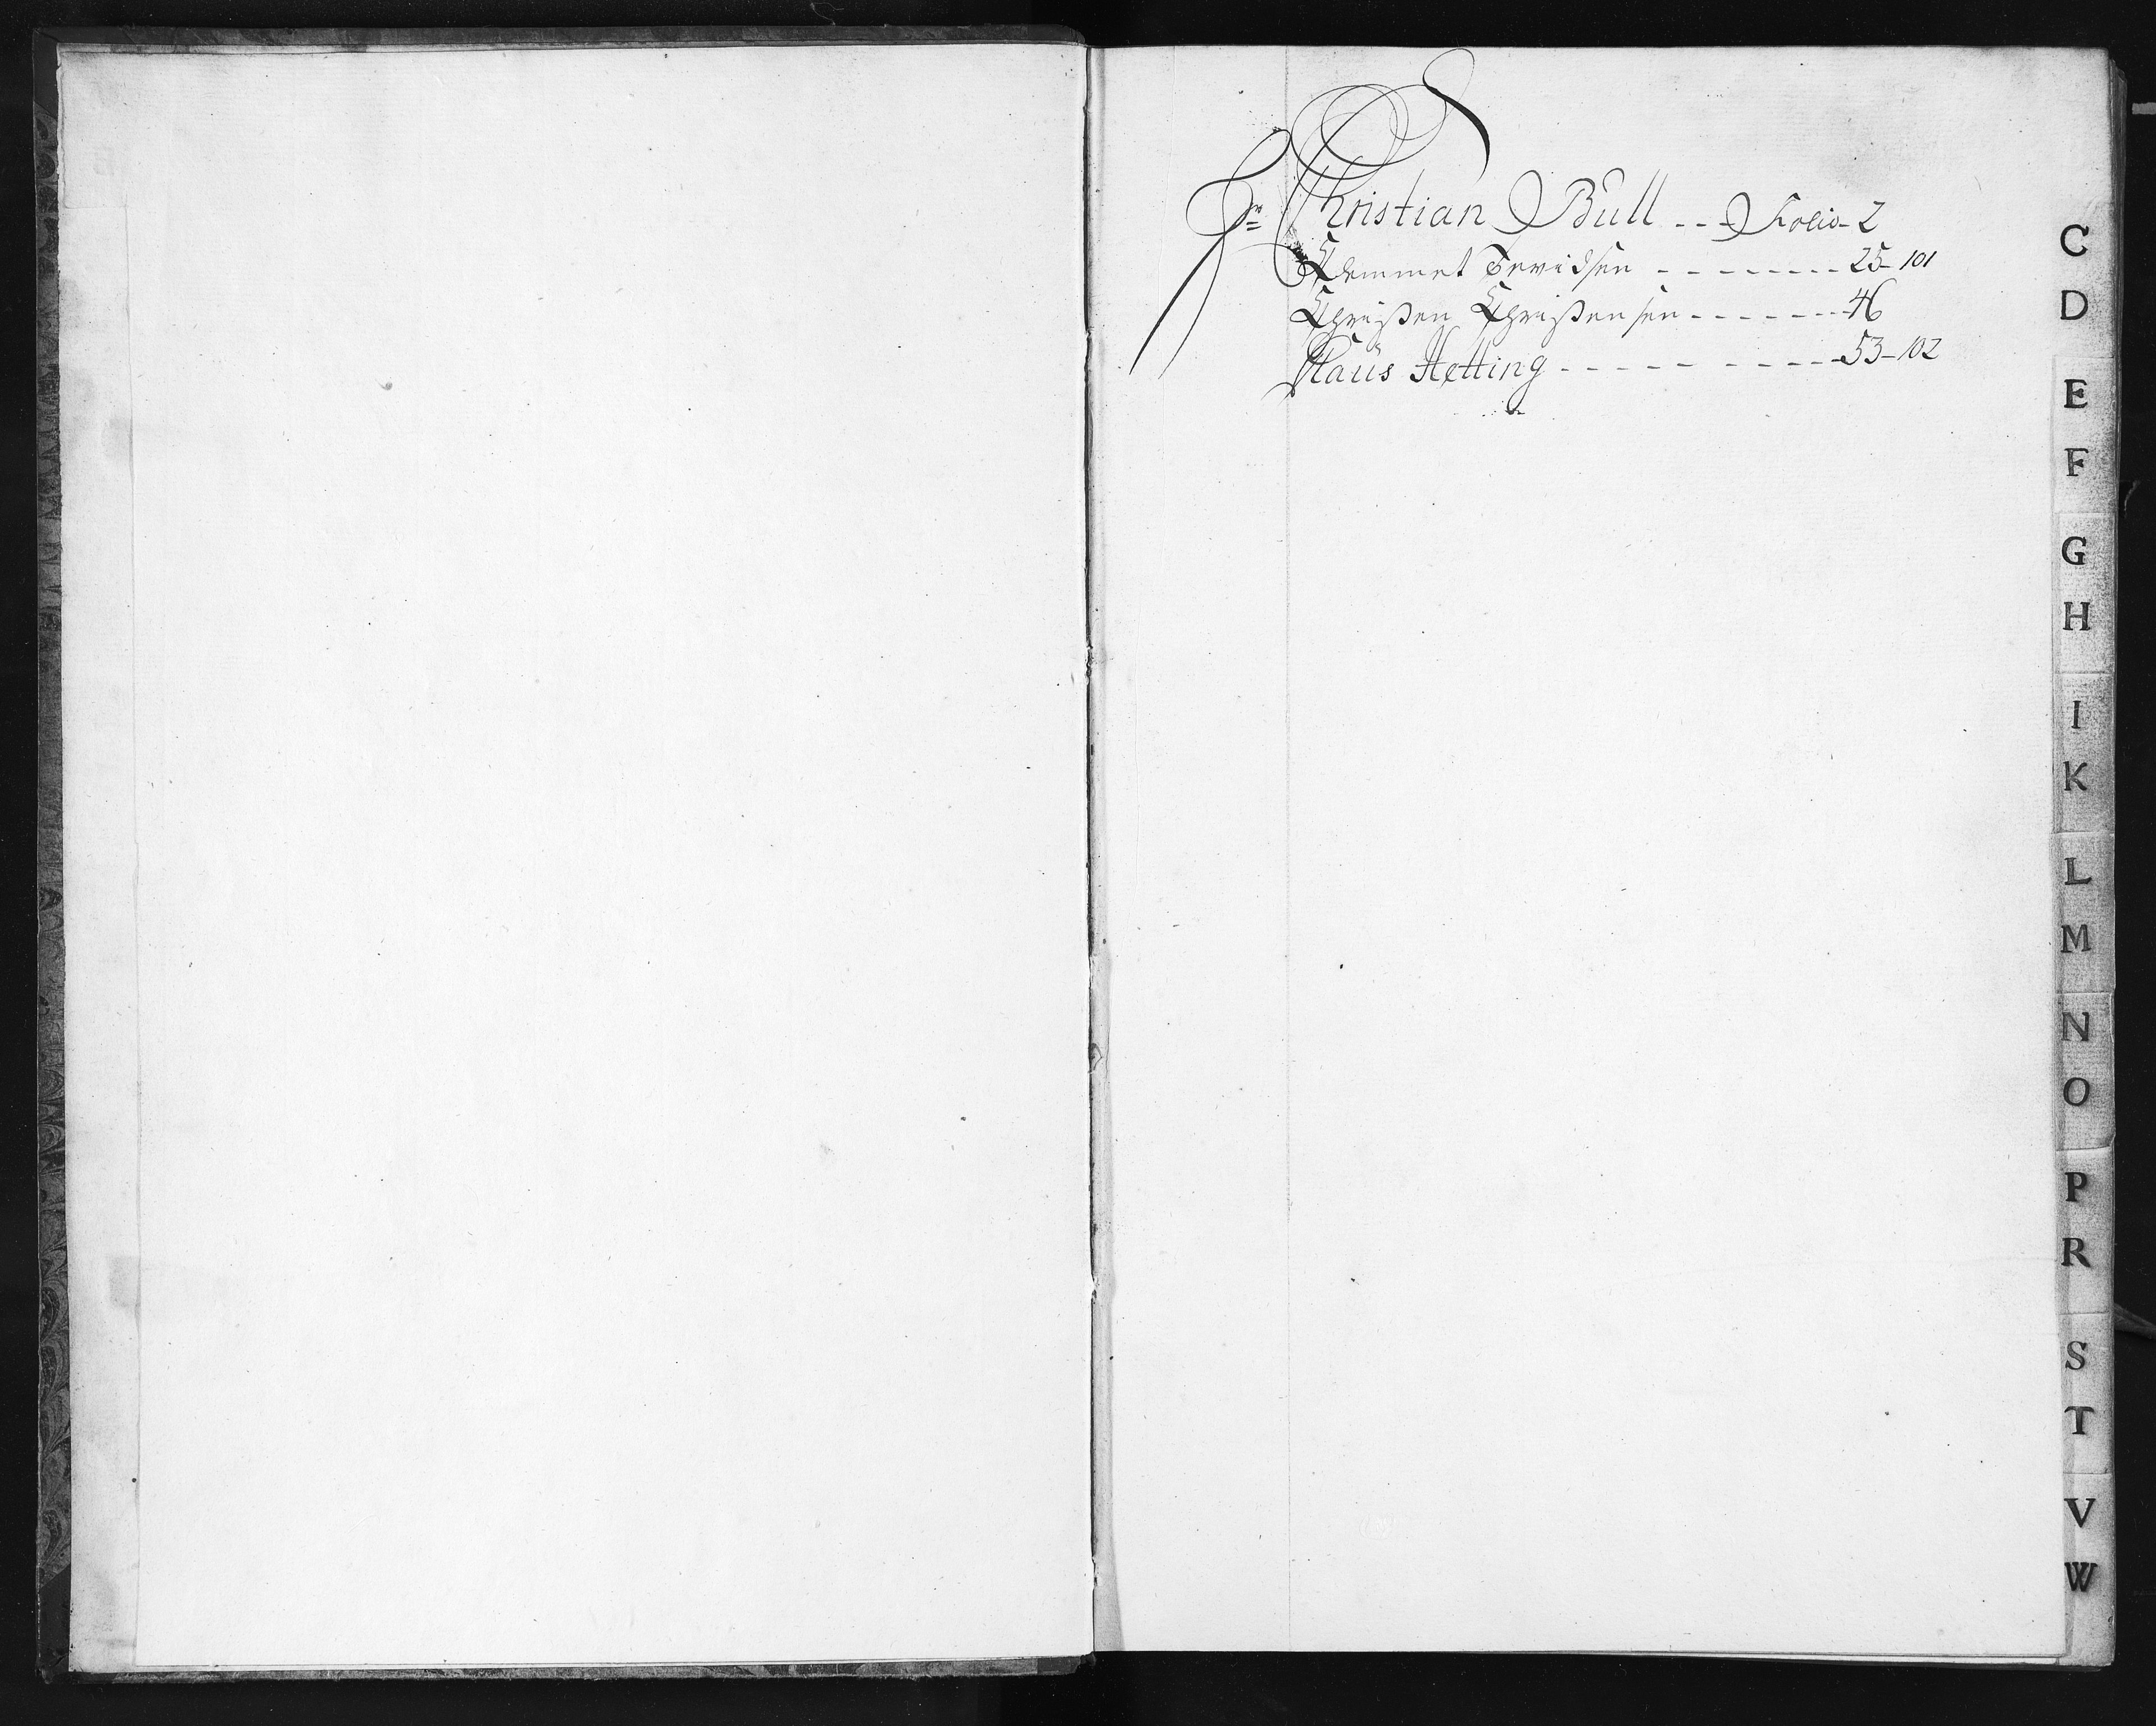 Sr Christian Bull -- Folio- 2
Clemmet Tevidsen - - - - - - - - 25-101
Christen Christensen - - - - - - - 46
Claüs Hetting - - - - - - - - - - 53-102
C
D
E
F
G
H
I
K
L
M
N
O
P
R
S
T
V
W